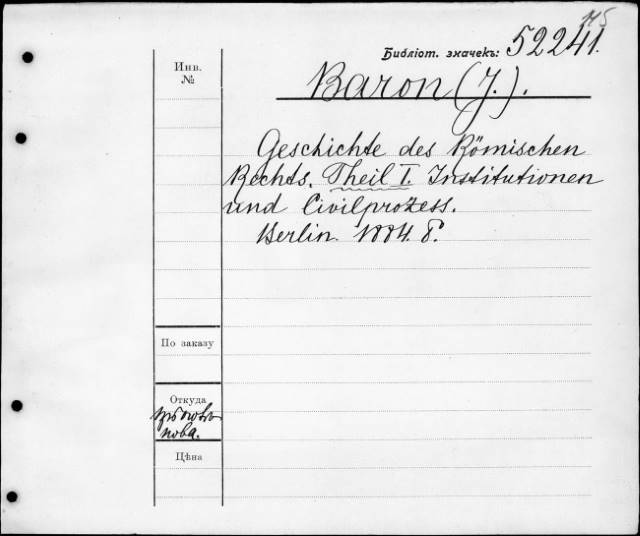 145
Библіот. значекъ: 52241.
Инв.
№
Baron (J.).
Geschichte des Römischen
Rechts. Theil I. Institutionen
und Civilprozess.
Berlin. 1884. 8°.
По заказу
Откуда
Цѣна